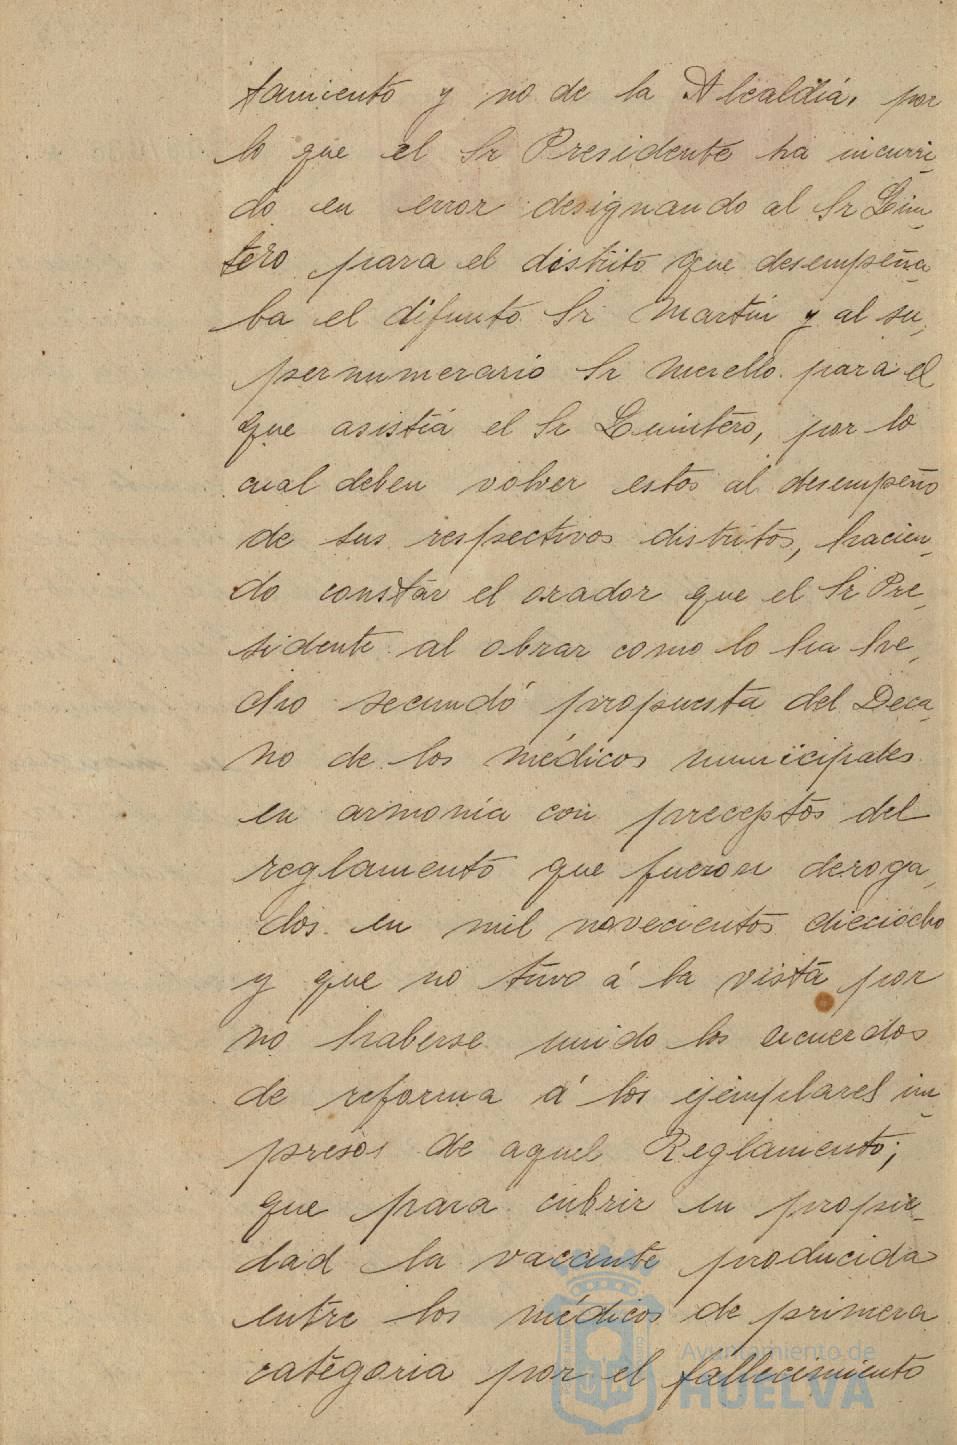 tamiento y no de la Alcaldía, por
lo que el Sr Presidente ha incurri-
do en error designando al Sr Quin-
tero para el distrito que desempeña-
ba el difunto Sr Martin y al su-
pernumerario Sr Morello para el
que asistía el Sr Quintero, por lo
cual deben volver estos al desempeño
de sus respectivos distritos, hacien-
do constar el orador que el Sr Pre-
sidente al obrar como lo ha he-
cho secundó propuesta del Deca-
no de los médicos municipales
en armonía con preceptos del
reglamento que fueron deroga-
dos en mil novecientos dieciocho
y que no tuvo á la vista por
no haberse unido los acuerdos
de reforma á los ejemplares im-
presos de aquel Reglamento;
que para cubrir en propie-
dad la vacante producida
entre los médicos de primera
categoria por el fallecimiento
Ayuntamiento de
HUELVA